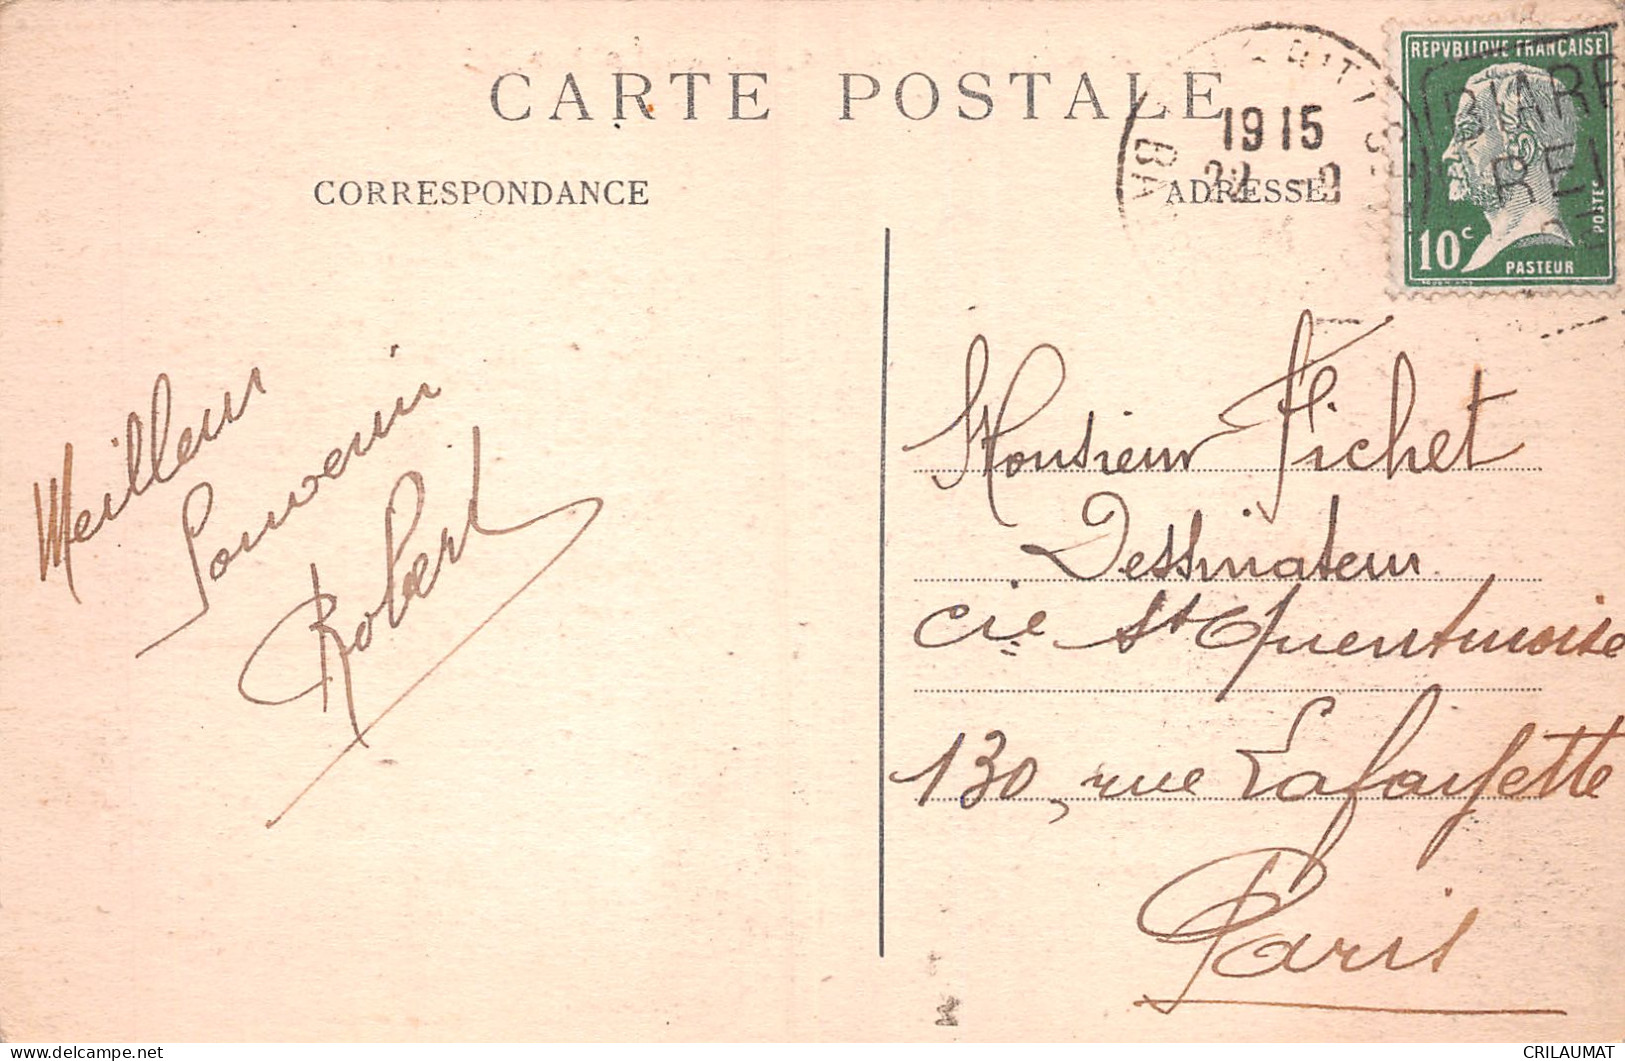 CARTE POSTALE
CORRESPONDANCE
ADRESSE
1915
REPVBLIQUE FRANÇAISE
POSTES
10c
PASTEUR
BIARR
Meilleur
Souvenir
Robert
Monsieur Fichet
Dessinateur
Cie St Quentinoise
130, rue Lafayette
Paris
CRILAUMAT